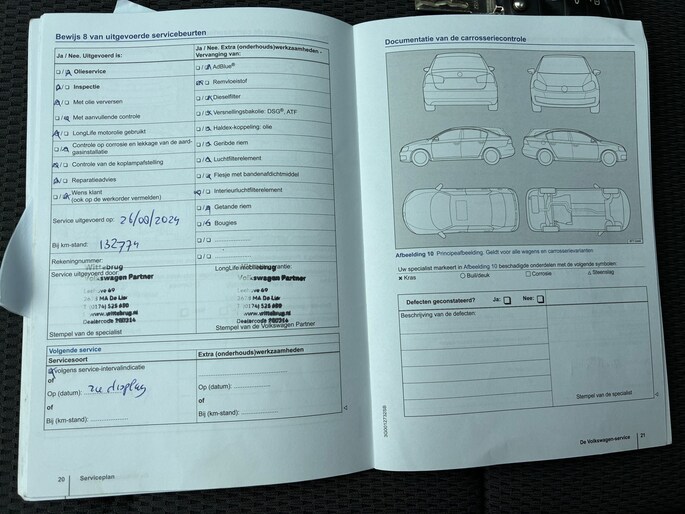 Bewijs 8 van uitgevoerde servicebeurten
Ja / Nee. Uitgevoerd is:
Ja / Nee. Extra (onderhouds)werkzaamheden -
Vervanging van:
Olieservice
AdBlue®
Inspectie
Remvloeistof
Met olie verversen
Dieselfilter
Met aanvullende controle
Versnellingsbakolie: DSG®, ATF
LongLife motorolie gebruikt
Haldex-koppeling: olie
Controle op corrosie en lekkage van de aard-
gasinstallatie
Geribde riem
Controle van de koplampafstelling
Luchtfilterelement
Reparatieadvies
Flesje met bandenafdichtmiddel
Wens klant
(ook op de werkorder vermelden)
Interieurluchtfilterelement
Getande riem
Service uitgevoerd op: 26/08/2024
Bougies
Bij km-stand: 132774
Rekeningnummer:
Service uitgevoerd door
Wittebrug
Volkswagen Partner
Wittebrug
Volkswagen Partner
www.wittebrug.nl
www.wittebrug.nl
Stempel van de specialist
Stempel van de Volkswagen Partner
Volgende service
Servicesoort
Extra (onderhouds)werkzaamheden
volgens service-intervalindicatie
of
Op (datum): zie display
Op (datum):
of
of
Bij (km-stand):
Bij (km-stand):
20 Serviceplan
Documentatie van de carrosseriecontrole
Afbeelding 10 Principeafbeelding. Geldt voor alle wagens en carrosserievarianten.
Uw specialist markeert in Afbeelding 10 beschadigde onderdelen met de volgende symbolen:
× Kras
○ Buil/deuk
□ Corrosie
△ Steenslag
Defecten geconstateerd?
Ja:
Nee:
Beschrijving van de defecten:
Stempel van de specialist
De Volkswagen-service 21